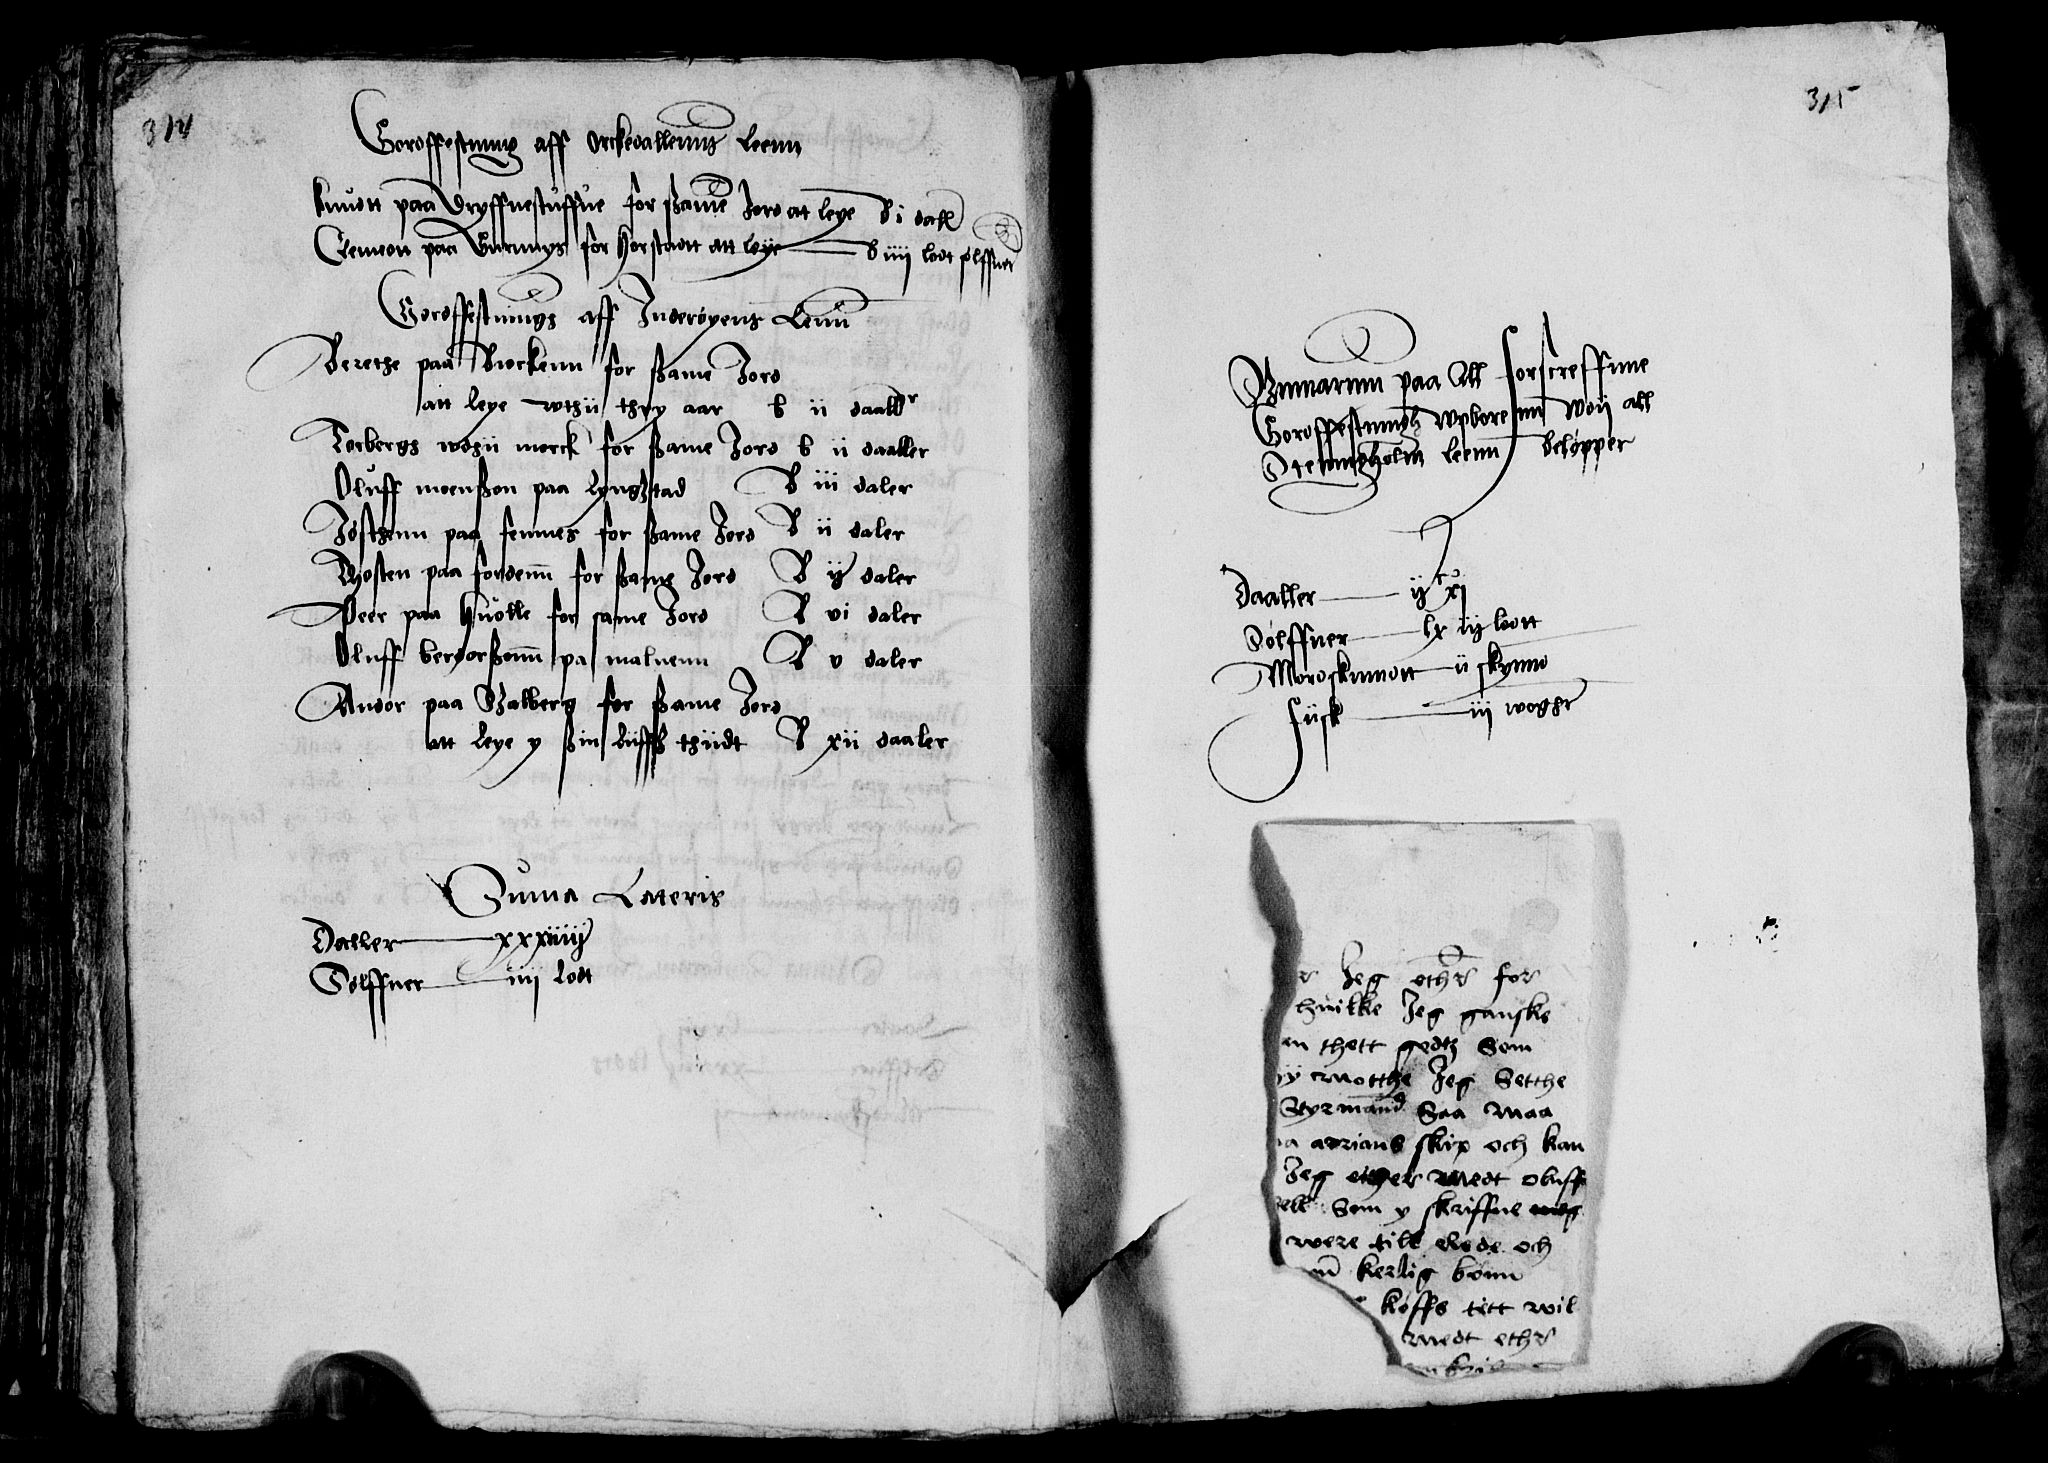 314
Gordffestning aff Orckedallenns Leenn
knudtt paa Dryffuestuffue for ßame Jord at leye b i dall
Clemeon paa Gurmys for Horstadtt att leye b iiij lodt sølffuer
Gordffestnings aff Inderøyens Lenn
Berethe paa Biockenn for ßame Jord
att leye wthii thry aar b ii daaller
Torbergs wdzii morck for ßame Jord b ii daaller
Oluff moenßon paa Lyngstad b iii daler
Jøsthenn paa fennes for ßame Jord b ii daler
Thosten paa fordenn for ßame Jord b ij daler
Peer paa Huolle for same Jord b vi daler
Oluff berdorßonn pa maluenn b v daler
Andor paa Valberg for ßame Jord
att leye y ßin liiffs thiidt b xii daaler
Suma Lateris
Daller xxxiiiij
Sølffuer iiij lodt
315
Summarum paa All forscreffnne
Gordffestningh wpboresnn wdii all
Stenwigholm leenn beløpper
Daaller ijc xi
Sølffuer lx iij lodtt
Mordskinndtt ii skynnd
fiisk iij wogher
r Jeg ether for
huilke Jeg ganske
en thett godtz Som
ij motthe Jeg Setthe
Styrmand Saa maa
aa adrians skip och kan
Jeg ether medt oluff
ell Som y skriffue meg
were till Rede och
om kerlig bønn
køffs titt wil
medt ether